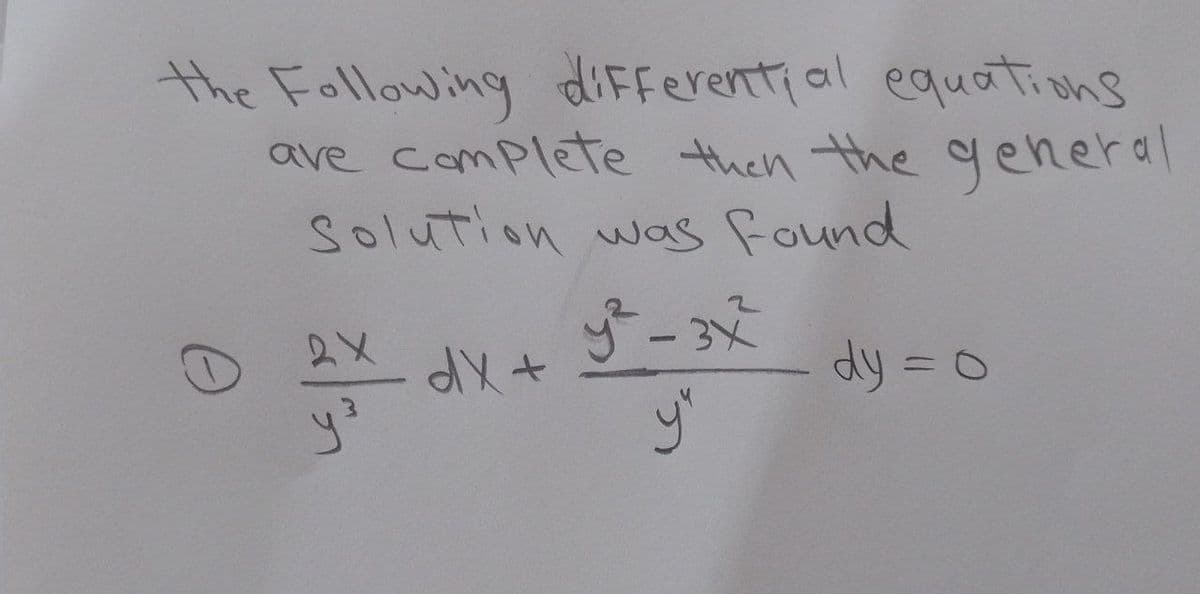 the Following differential equations
are complete then the general
Solution was found
① 2x/y³ dx + y² - 3x²/y⁴ dy = 0